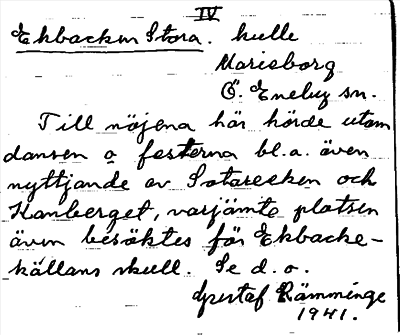 IV
Ekbacken Stora. kulle
Marieborg
Ö. Eneby sn.
Till nöjena här hörde utom
dansen o festerna bl.a. även
nyttjande av Sotareeken och
Kanberget, varjämte platsen
även besöktes för Ekbacke-
källans skull. Se d. o.
Gustaf Rämminge
1941.